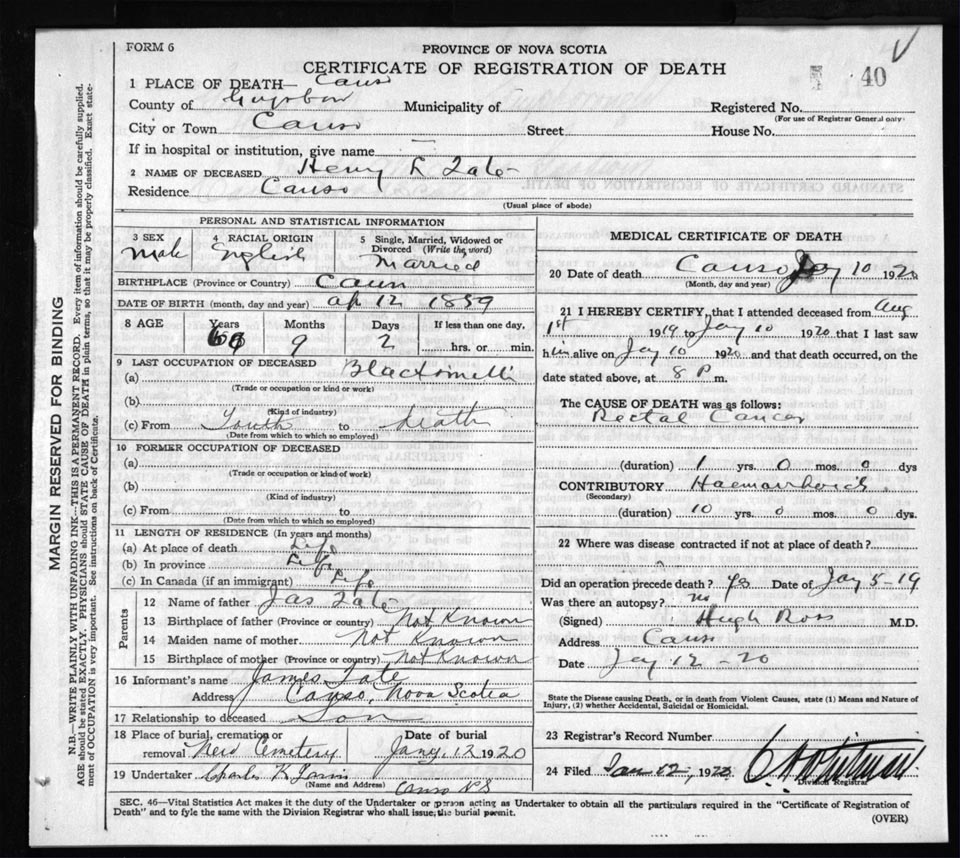 FORM 6
PROVINCE OF NOVA SCOTIA
CERTIFICATE OF REGISTRATION OF DEATH
40
1 PLACE OF DEATH— Canso
County of Guysboro Municipality of Registered No.
(For use of Registrar General only)
City or Town Canso Street House No.
If in hospital or institution, give name
2 NAME OF DECEASED Henry Tate
Residence Canso
(Usual place of abode)
MARGIN RESERVED FOR BINDING
N.B.—WRITE PLAINLY WITH UNFADING INK—THIS IS A PERMANENT RECORD. Every item of information should be carefully supplied. AGE should be stated EXACTLY. PHYSICIANS should STATE CAUSE OF DEATH in plain terms, so that it may be properly classified. Exact statement of OCCUPATION is very important. See instructions on back of Certificate.
PERSONAL AND STATISTICAL INFORMATION
3 SEX Male 4 RACIAL ORIGIN English 5 Single, Married, Widowed or Divorced (Write the word) Married
BIRTHPLACE (Province or Country) Canso
DATE OF BIRTH (month, day and year) Ap 12 1859
8 AGE Years 60 Months 9 Days 2 If less than one day, hrs. or min.
9 LAST OCCUPATION OF DECEASED
(a) Blacksmith
(Trade or occupation or kind or work)
(b)
(Kind of industry)
(c) From Youth to death
(Date from which to which so employed)
10 FORMER OCCUPATION OF DECEASED
(a)
(Trade or occupation or kind of work)
(b)
(Kind of industry)
(c) From to
(Date from which to which so employed)
11 LENGTH OF RESIDENCE (In years and months)
(a) At place of death Life
(b) In province Life
(c) In Canada (if an immigrant) Life
Parents
12 Name of father Jas Tate
13 Birthplace of father (Province or country) Not Known
14 Maiden name of mother Not Known
15 Birthplace of mother (Province or country) Not Known
16 Informant's name James Tate
Address Canso, Nova Scotia
17 Relationship to deceased Son
18 Place of burial, cremation or removal Cemetery Date of burial Jany. 12 1920
19 Undertaker Charles K
(Name and Address) Canso NS
MEDICAL CERTIFICATE OF DEATH
20 Date of death Canso Jay 10 1920
(Month, day and year)
21 I HEREBY CERTIFY, that I attended deceased from Aug
1st 1919 to Jay 10 1920 that I last saw
him alive on Jay 10 1920 and that death occurred, on the
date stated above, at 8 P m.
The CAUSE OF DEATH was as follows:
Rectal Cancer
(duration) 1 yrs. 0 mos. 0 dys
CONTRIBUTORY Haemorrhoids.
(Secondary)
(duration) 10 yrs. 0 mos. 0 dys.
22 Where was disease contracted if not at place of death?
Did an operation precede death? Yes Date of Jay 5-19
Was there an autopsy? no
(Signed) Hugh Ross M.D.
Address Canso
Date Jay 12 -20
State the Disease causing Death, or in death from Violent Causes, state (1) Means and Nature of
Injury, (2) whether Accidental, Suicidal or Homicidal.
23 Registrar's Record Number
24 Filed Jan 12, 1920 Whitman
Division Registrar
SEC. 46—Vital Statistics Act makes it the duty of the Undertaker or person acting as Undertaker to obtain all the particulars required in the "Certificate of Registration of
Death" and to fyle the same with the Division Registrar who shall issue the burial permit.
(OVER)